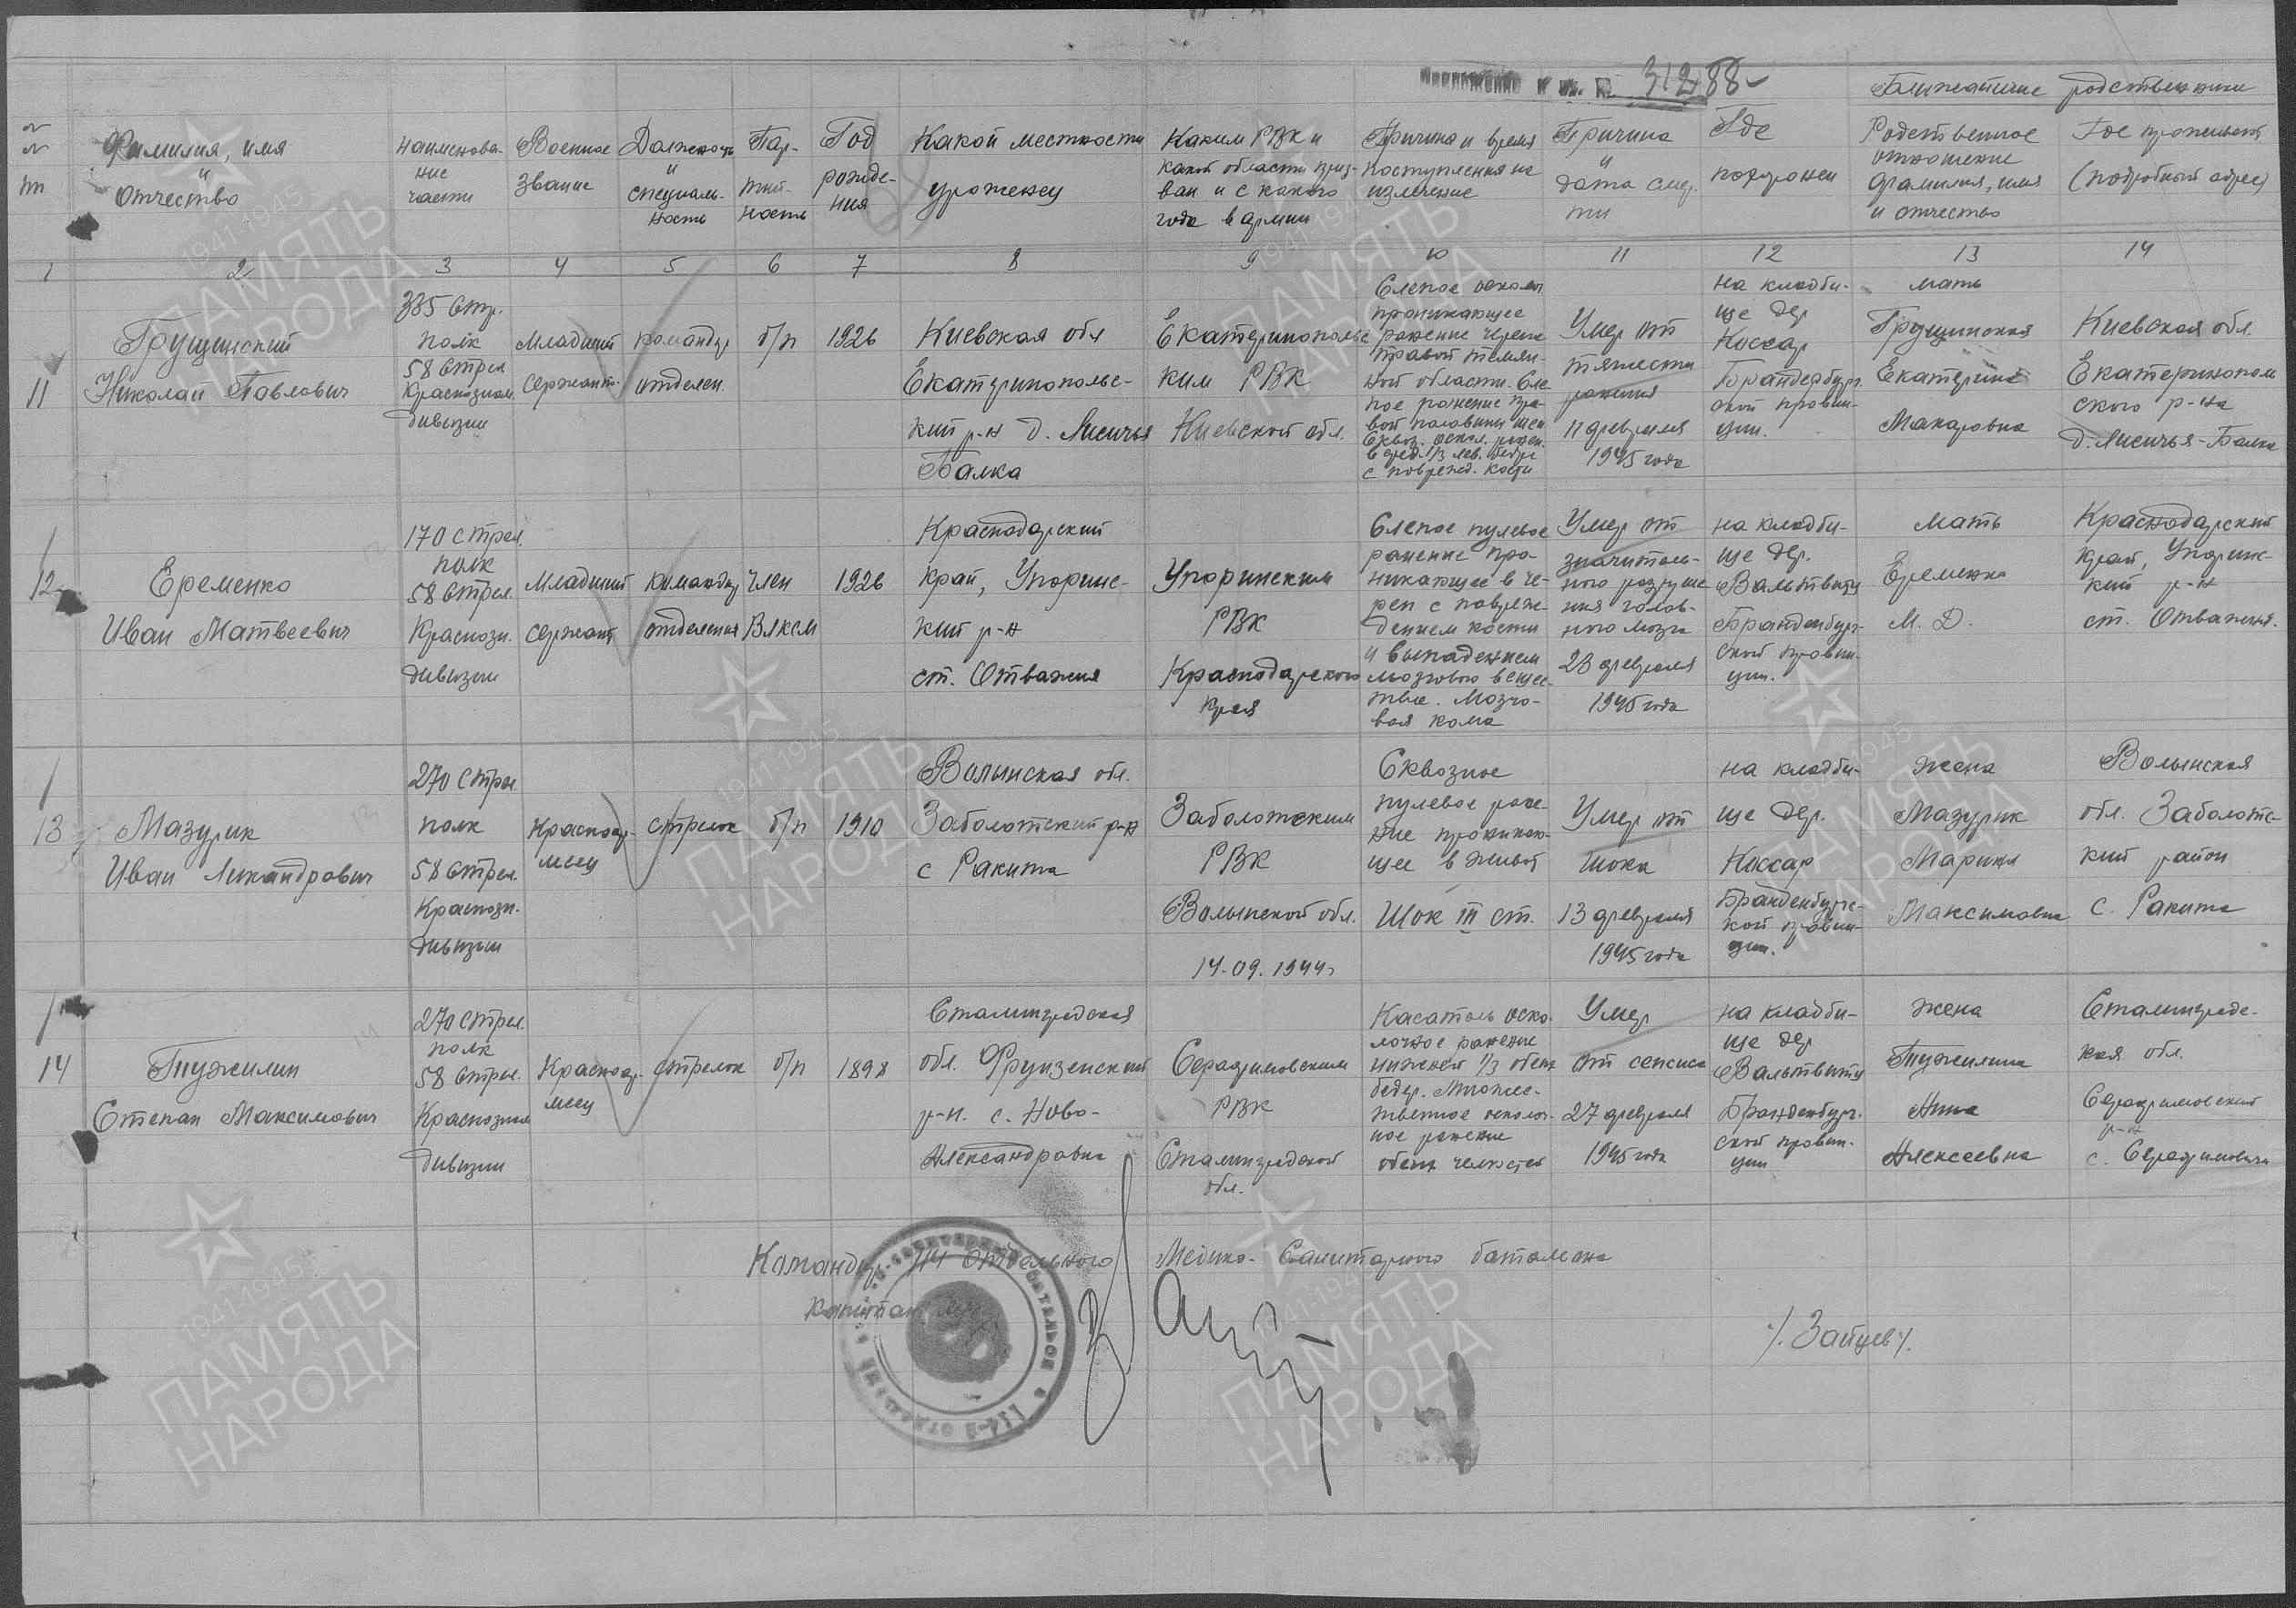 Приложение к вх. № 31288
Ближайшие родственники
№№ пп
Фамилия, имя и отчество
Наименова-
ние
части
Военное
звание
Должность
и
специаль-
ность
Пар-
тий-
ность
Год
рожде-
ния
Какой местности
уроженец
Каким РВК и
какой области приз-
ван и с какого
года в армии
Причина и время
поступления на
излечение
Причина
и
дата смер-
ти
Где
похоронен
Родственное
отношение
фамилия, имя
и отчество
Где проживают
(подробный адрес)
1 2 3 4 5 6 7 8 9 10 11 12 13 14
11
Грущинский
Николай Павлович
335 Стр.
полк
58 Стрел.
Краснознам.
дивизии
Младший
сержант
командир
отделен.
б/п
1926
Киевская обл
Екатеринопольс-
кий р-н д. Лисичья
Балка
Екатеринопольс
ким РВК
Киевской обл.
Слепое оскол.
проникающее
ранение черепа
правой темен-
ной области. Сле
пое ранение пра-
вой половины шеи
Сквоз. оскол. ранен.
в сред. 1/3 лев. бедра
с поврежд. кости
Умер от
тяжести
ранения
11 февраля
1945 года
на кладби-
ще дер
Коссар
Бранденбург.
ской провин-
ции.
мать
Грущинская
Екатерина
Макаровна
Киевская обл.
Екатеринополь
ского р-на
д. Лисичья-Балка
12
Еременко
Иван Матвеевич
170 Стрел.
полк
58 Стрел.
Краснозн.
дивизии
Младший
сержант
командир
отделения
член
ВЛКСМ
1926
Краснодарский
край, Упоринс-
кий р-н
ст. Отважная
Упоринским
РВК
Краснодарского
края
Слепое пулевое
ранение про-
никающее в че-
реп с повреж-
дением кости
и выпадением
мозгового вещес-
тва. Мозго-
вая кома
Умер от
значитель-
ного разруше
ния голов-
ного мозга
23 февраля
1945 года
на кладби-
ще дер.
Вальтвиту
Бранденбург-
ской провин-
ции.
мать
Еременко
М. Д.
Краснодарский
край, Упоринс-
кий р-н
ст. Отважная.
13
Мазурик
Иван Никандрович
270 Стрел.
полк
58 Стрел.
Краснозн.
дивизии
Красноар-
меец
стрелок
б/п
1910
Волынская обл.
Заболотский р-н
с Ракита
Заболотским
РВК
Волынской обл.
14.09.1944г
Сквозное
пулевое ране-
ние проникаю-
щее в живот
Шок III ст.
Умер от
шока
13 февраля
1945 года
на кладби-
ще дер.
Коссар
Бранденбургс-
кой провин-
ции.
жена
Мазурик
Марина
Максимовна
Волынская
обл. Заболотс-
кий район
с. Ракита
14
Тужилин
Степан Максимович
270 Стрел.
полк
58 Стрел.
Краснознам
дивизии
Красноар-
меец
стрелок
б/п
1898
Сталинградская
обл. Фрунзенский
р-н. с. Ново-
Александровка
Серафимовским
РВК
Сталинградской
обл.
Касатель оско-
лочное ранение
нижней 1/3 обеих
бедер. Множес-
твенное осколоч-
ное ранение
обеих челюстей
Умер
от сепсиса
27 февраля
1945 года
на кладби-
ще дер
Вальтвиту
Бранденбург-
ской провин-
ции
жена
Тужилина
Анна
Алексеевна
Сталинградс-
кая обл.
Серафимовский
р-н
с. Серафимович
Командир 114 Отдельного Медико-Санитарного батальона
капитан м/с
/. Зайцев /.
1941 1945
ПАМЯТЬ
НАРОДА